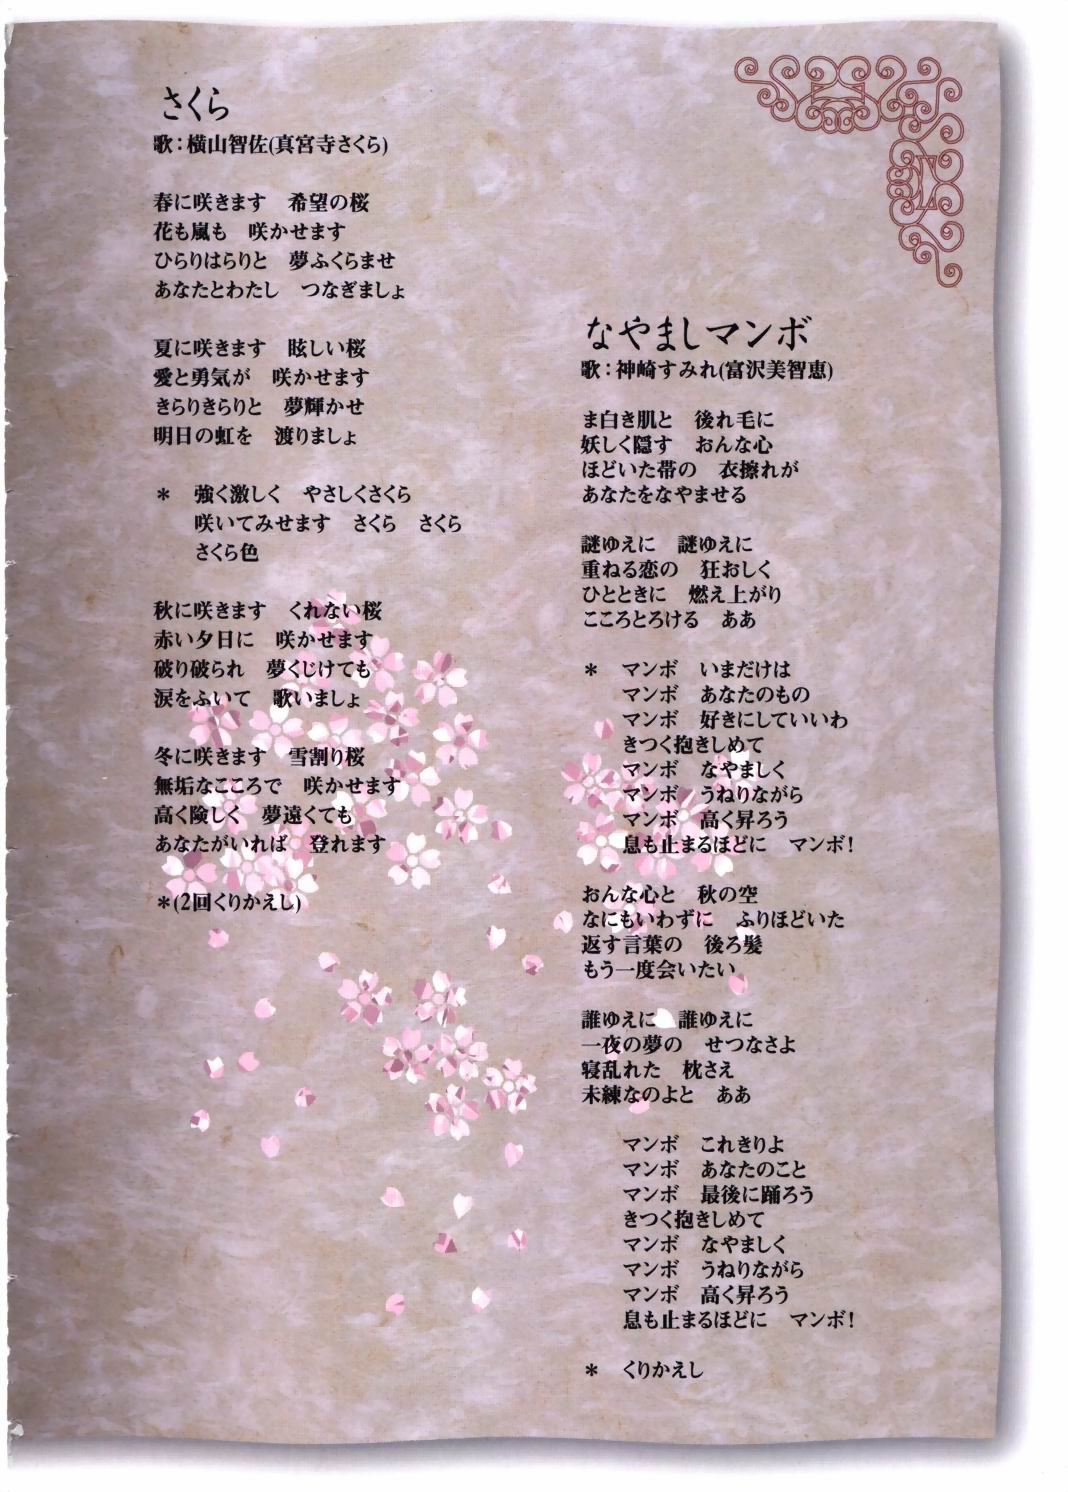 さくら
歌：横山智佐(真宮寺さくら)
春に咲きます　希望の桜
花も嵐も　咲かせます
ひらりはらりと　夢ふくらませ
あなたとわたし　つなぎましょ
夏に咲きます　眩しい桜
愛と勇気が　咲かせます
きらりきらりと　夢輝かせ
明日の虹を　渡りましょ
＊　強く激しく　やさしくさくら
咲いてみせます　さくら　さくら
さくら色
秋に咲きます　くれない桜
赤い夕日に　咲かせます
破り破られ　夢くじけても
涙をふいて　歌いましょ
冬に咲きます　雪割り桜
無垢なこころで　咲かせます
高く険しく　夢遠くても
あなたがいれば　登れます
＊(2回くりかえし)
なやましマンボ
歌：神崎すみれ(富沢美智恵)
ま白き肌と　後れ毛に
妖しく隠す　おんな心
ほどいた帯の　衣擦れが
あなたをなやませる
謎ゆえに　謎ゆえに
重ねる恋の　狂おしく
ひとときに　燃え上がり
こころとろける　ああ
＊　マンボ　いまだけは
マンボ　あなたのもの
マンボ　好きにしていいわ
きつく抱きしめて
マンボ　なやましく
マンボ　うねりながら
マンボ　高く昇ろう
息も止まるほどに　マンボ！
おんな心と　秋の空
なにもいわずに　ふりほどいた
返す言葉の　後ろ髪
もう一度会いたい
誰ゆえに　誰ゆえに
一夜の夢の　せつなさよ
寝乱れた　枕さえ
未練なのよと　ああ
マンボ　これきりよ
マンボ　あなたのこと
マンボ　最後に踊ろう
きつく抱きしめて
マンボ　なやましく
マンボ　うねりながら
マンボ　高く昇ろう
息も止まるほどに　マンボ！
＊　くりかえし